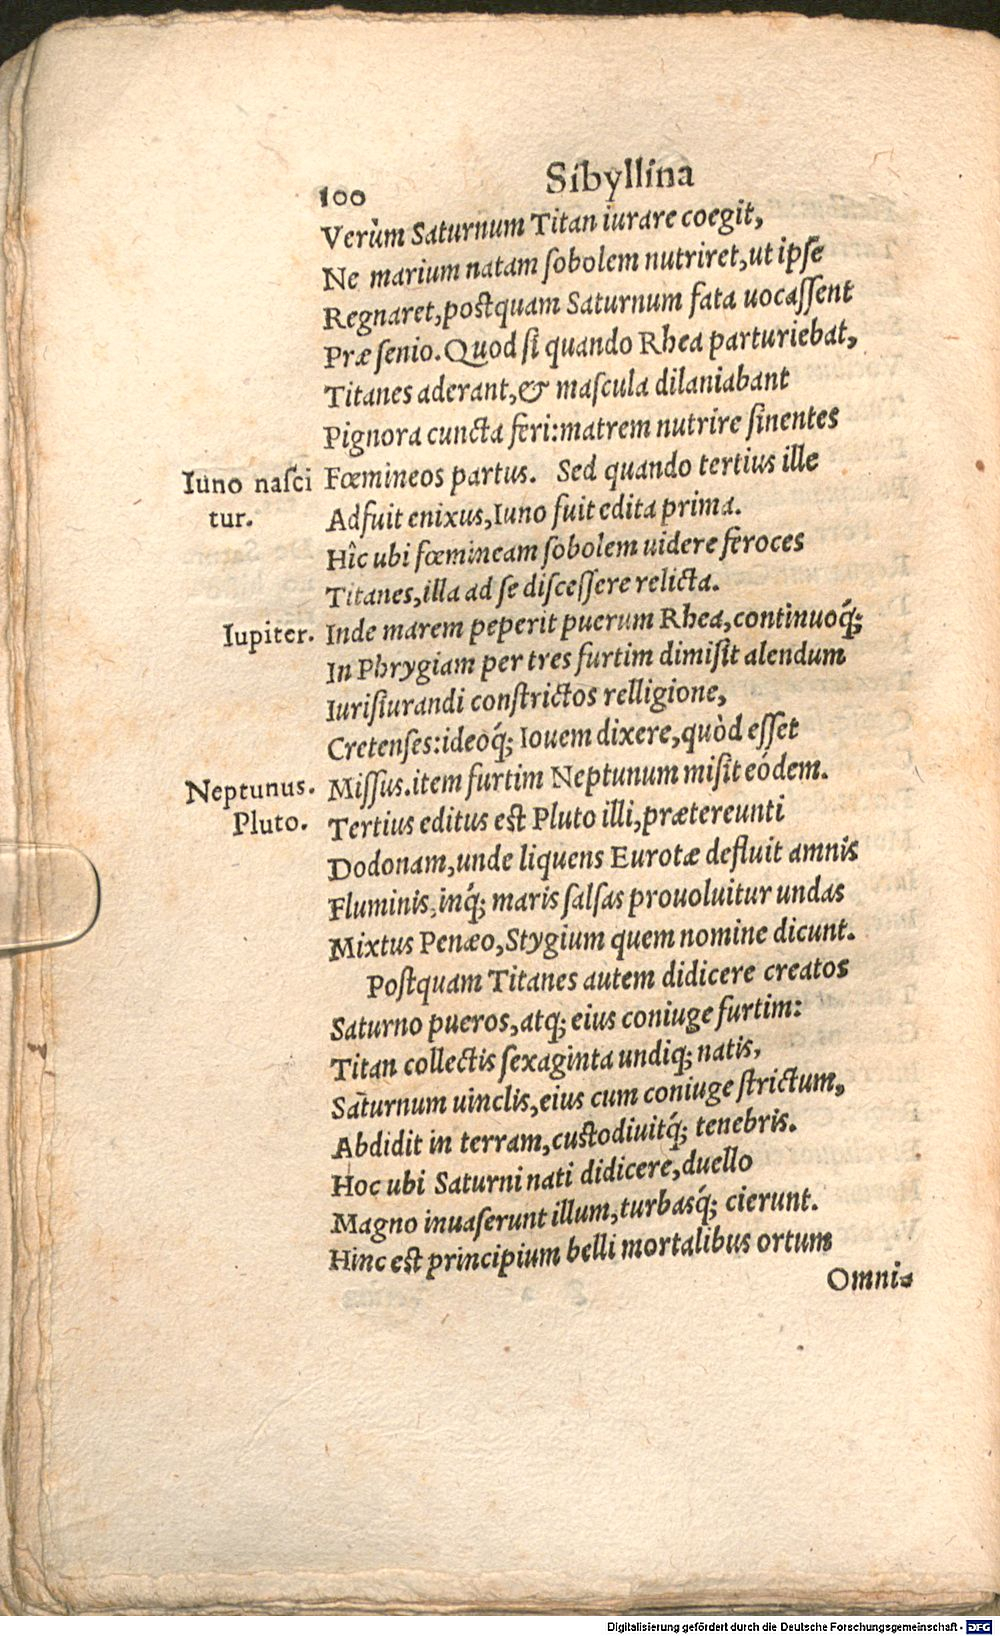 100 Sibyllina
Verùm Saturnum Titan iurare coegit,
Ne marium natam ſobolem nutriret, ut ipſe
Regnaret, poſtquam Saturnum fata uocaſſent
Præ ſenio. Quod ſi quando Rhea parturiebat,
Titanes aderant, & maſcula dilaniabant
Pignora cuncta feri: matrem nutrire ſinentes
Iuno naſci Fœmineos partus. Sed quando tertius ille
tur. Adfuit enixus, Iuno fuit edita prima.
Hîc ubi fœmineam ſobolem uidere feroces
Titanes, illa ad ſe diſceſſere relicta.
Iupiter. Inde marem peperit puerum Rhea, continuoq́;
In Phrygiam per tres furtim dimiſit alendum
Iuriſiurandi conſtrictos relligione,
Cretenſes: ideoq́; Iouem dixere, quòd eſſet
Neptunus. Miſſus. item furtim Neptunum miſit eódem.
Pluto. Tertius editus est Pluto illi, prætereunti
Dodonam, unde liquens Eurotæ defluit amnis
Fluminis, inq́; maris ſalſas prouoluitur undas
Mixtus Penæo, Stygium quem nomine dicunt.
Poſtquam Titanes autem didicere creatos
Saturno pueros, atq; eius coniuge furtim:
Titan collectis ſexaginta undiq; natis,
Saturnum uinclis, eius cum coniuge ſtrictum,
Abdidit in terram, cuſtodiuitq́; tenebris.
Hoc ubi Saturni nati didicere, duello
Magno inuaſerunt illum, turbasq́; cierunt.
Hinc est principium belli mortalibus ortum
Omni-
Digitalisierung gefördert durch die Deutsche Forschungsgemeinschaft - DFG